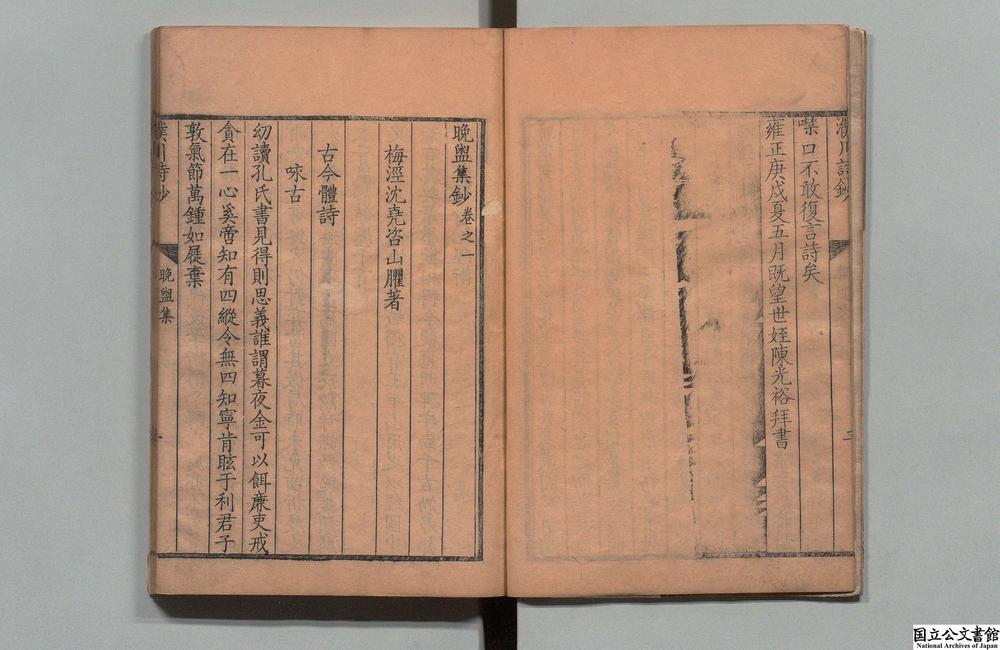 濮川詩鈔
噤口不敢復言詩矣
雍正庚戌夏五月既望世姪陳光裕拜書
二
晚盥集鈔 卷之一
梅涇沈堯咨山臞著
古今體詩
咏古
幼讀孔氏書見得則思義誰謂暮夜金可以餌廉吏戒
貪在一心奚啻知有四縱令無四知寧肯眩于利君子
敦氣節萬鍾如屣棄
濮川詩鈔
晚盥集
一
国立公文書館
National Archives of Japan